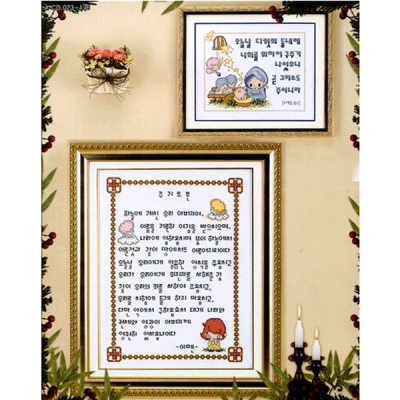 오늘날 다윗의 동네에
너희를 위하여 구주가
나셨으니
곧 그리스도
주시니라
주기도문
하늘에 계신 우리 아버지여,
이름을 거룩히 여김을 받으시오며,
나라이 임하옵시며 뜻이 하늘에서
이룬것과 같이 땅에서도 이루어지이다
오늘날 우리에게 일용할 양식을 주옵시고
우리가 우리에게 죄지은자를 사하여준것
같이 우리의 죄를 사하여 주옵시고
우리를 시험에 들게 하지 마옵시고,
다만 악에서 구하옵소서 대개 나라와
권세와 영광이 아버지께
영원히 있사옵나이다
-아멘-